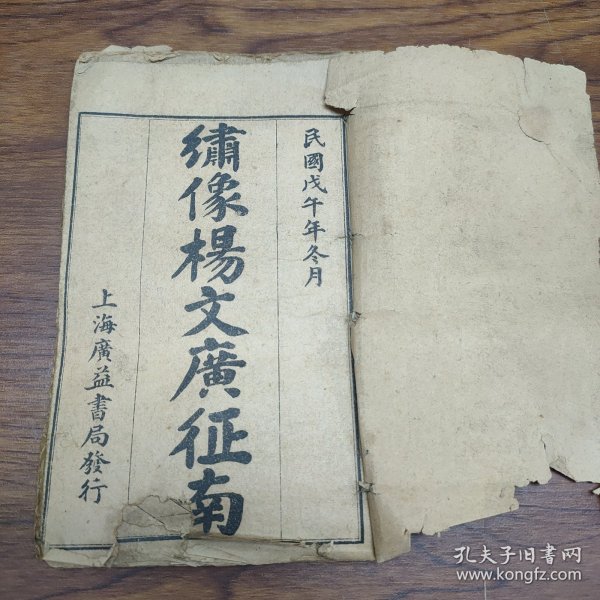 民國戊午年冬月
繡像楊文廣征南
上海廣益書局發行
孔夫子旧书网
www.kongfz.com